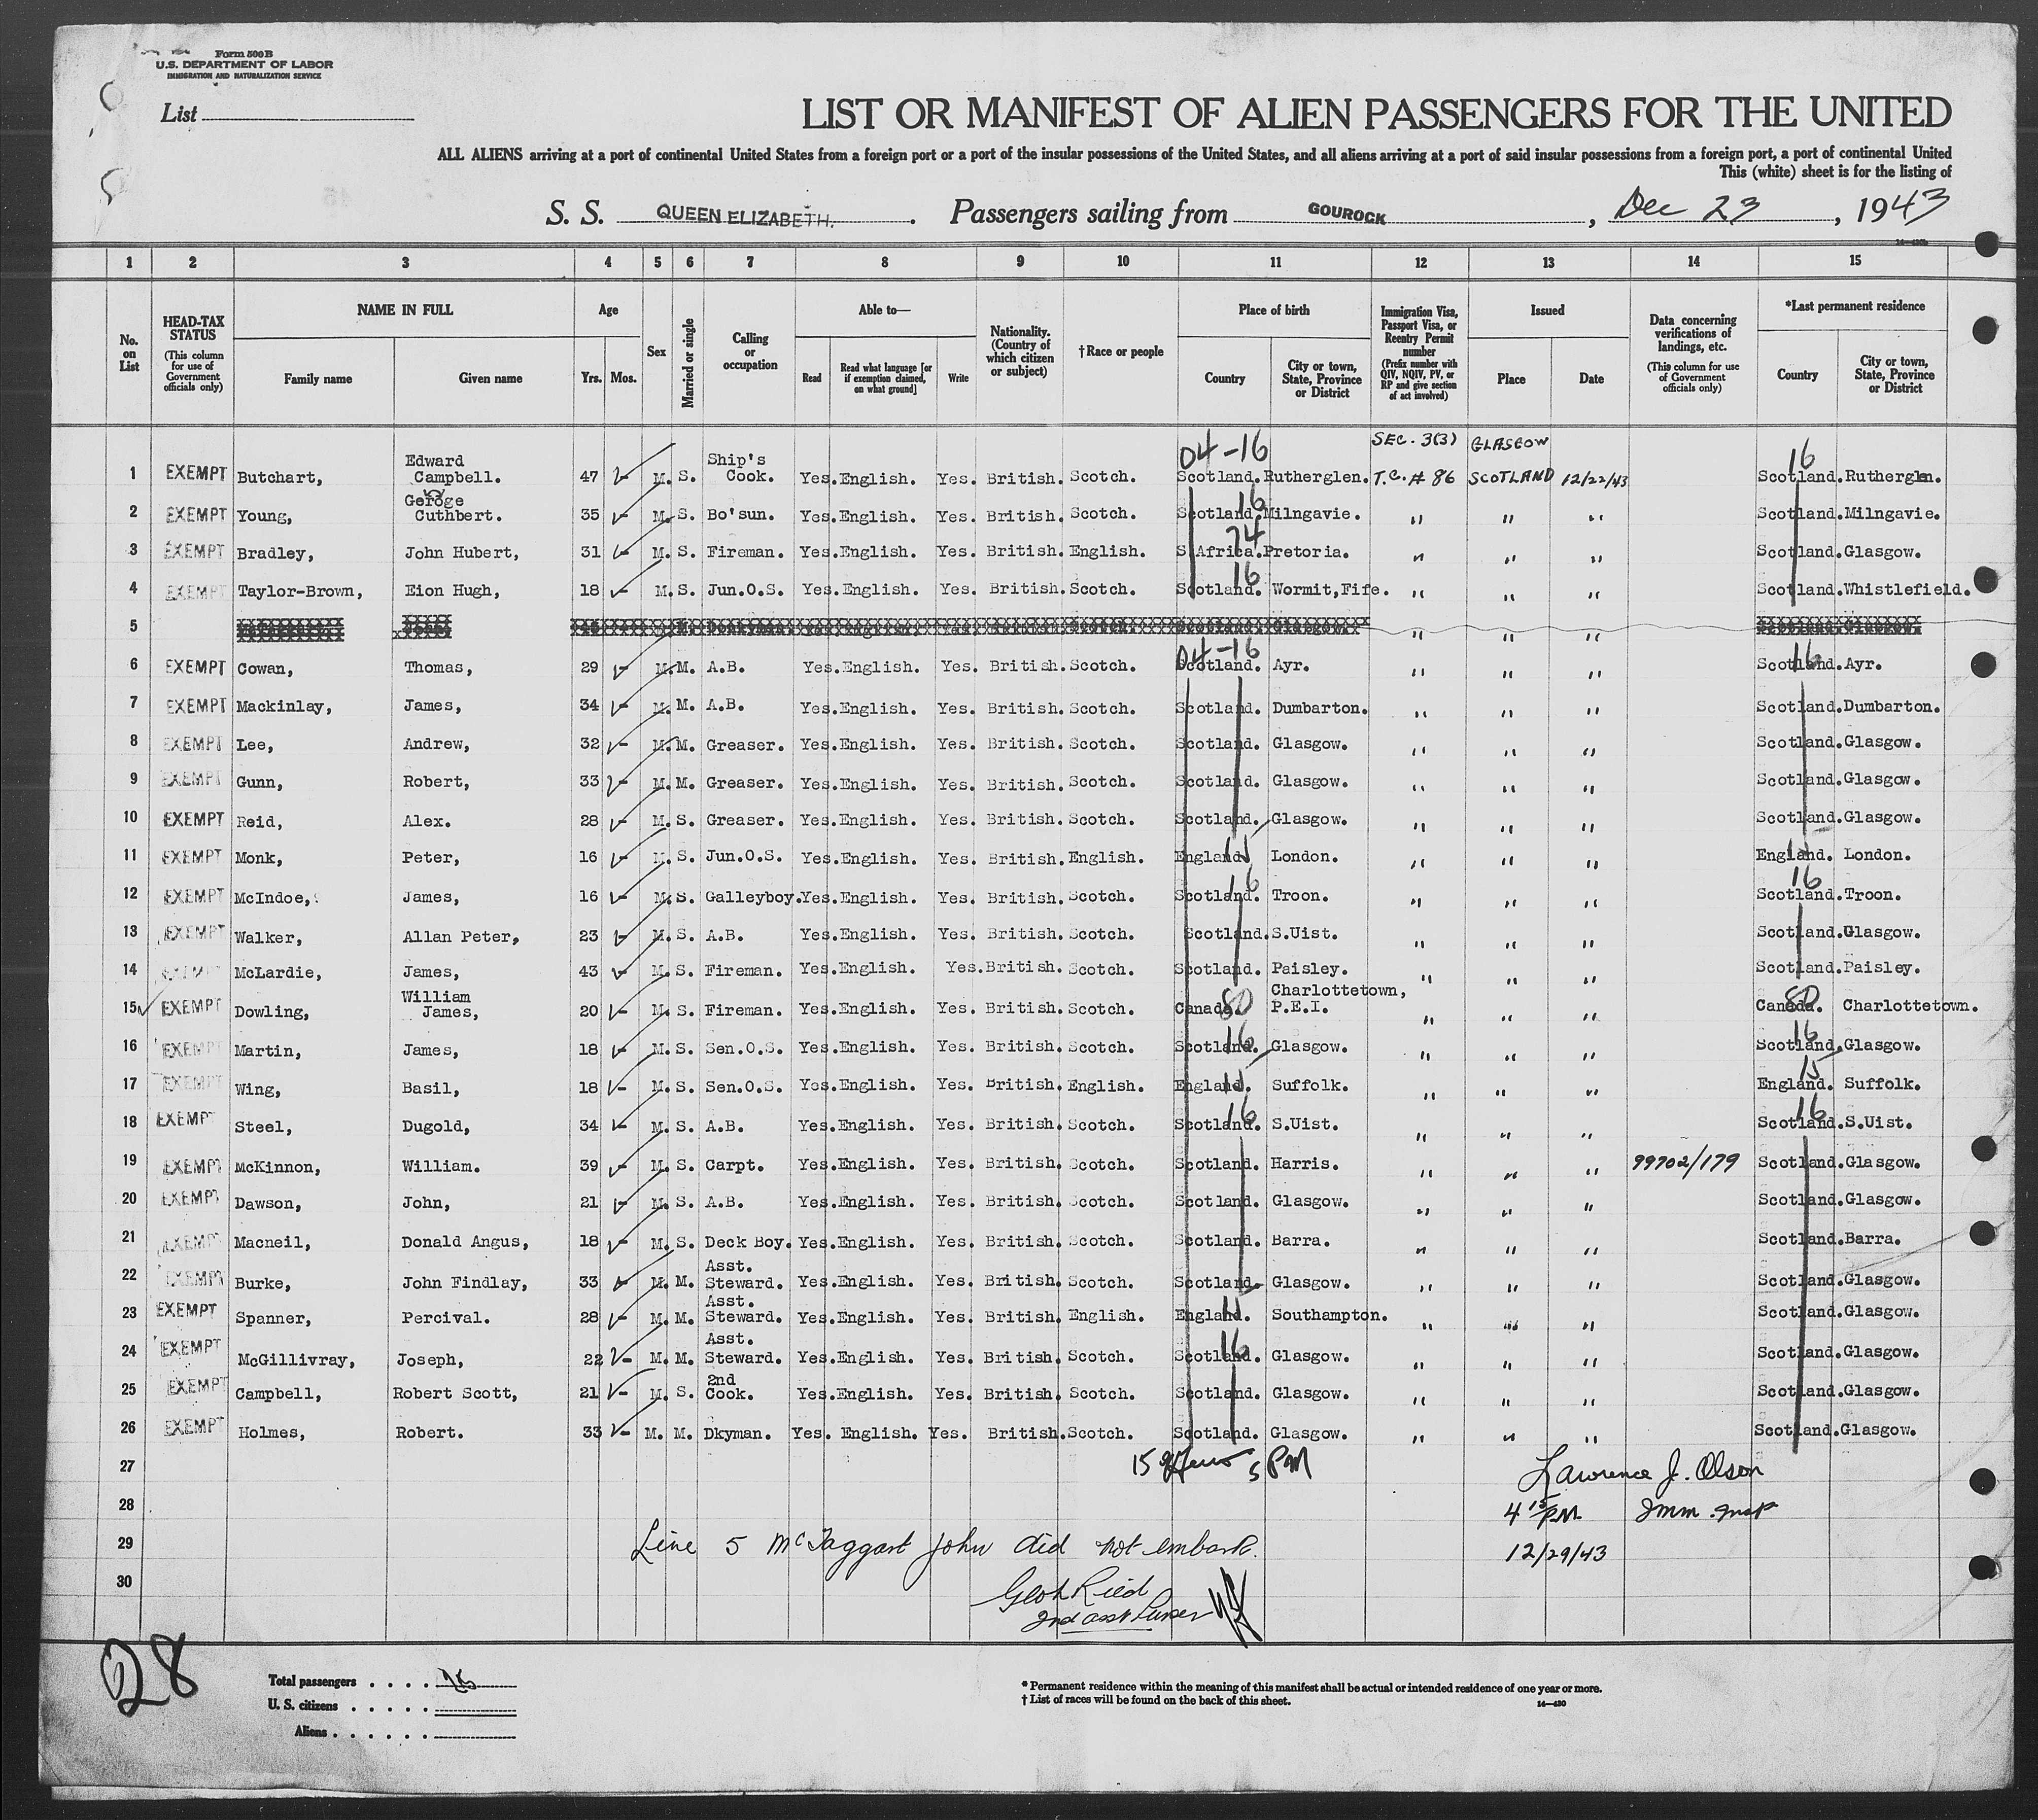 Form 500B
U.S. DEPARTMENT OF LABOR
IMMIGRATION AND NATURALIZATION SERVICE
List
LIST OR MANIFEST OF ALIEN PASSENGERS FOR THE UNITED
ALL ALIENS arriving at a port of continental United States from a foreign port or a port of the insular possessions of the United States, and all aliens arriving at a port of said insular possessions from a foreign port, a port of continental United
This (white) sheet is for the listing of
S. S. QUEEN ELIZABETH. Passengers sailing from GOUROCK, Dec 23, 1943
1 2 3 4 5 6 7 8 9 10 11 12 13 14 15
No. on List
HEAD-TAX STATUS (This column for use of Government officials only)
NAME IN FULL Family name Given name
Age Yrs. Mos.
Sex
Married or single
Calling or occupation
Able to— Read Read what language [or if exemption claimed, on what ground] Write
Nationality. (Country of which citizen or subject)
†Race or people
Place of birth Country City or town, State, Province or District
Immigration Visa, Passport Visa, or Reentry Permit number (Prefix number with QIV, NQIV, PV, or RP and give section of act involved)
Issued Place Date
Data concerning verifications of landings, etc. (This column for use of Government officials only)
*Last permanent residence Country City or town, State, Province or District
04-16 SEC. 3(3) GLASGOW 16
1 EXEMPT Butchart, Edward Campbell. 47 M. S. Ship's Cook. Yes. English. Yes. British. Scotch. Scotland. Rutherglen. T.C. # 86 SCOTLAND 12/22/43 Scotland. Rutherglen.
2 EXEMPT Young, Geroge Cuthbert. 35 M. S. Bo'sun. Yes. English. Yes. British. Scotch. Scotland. 16 Milngavie. " " " Scotland. Milngavie.
3 EXEMPT Bradley, John Hubert, 31 M. S. Fireman. Yes. English. Yes. British. English. S Africa. 74 Pretoria. " " " Scotland. Glasgow.
4 EXEMPT Taylor-Brown, Eion Hugh, 18 M. S. Jun.O.S. Yes. English. Yes. British. Scotch. Scotland. 16 Wormit,Fife. " " " Scotland. Whistlefield.
5 " " "
04-16 16
6 EXEMPT Cowan, Thomas, 29 M. M. A.B. Yes. English. Yes. British. Scotch. Scotland. Ayr. " " " Scotland. Ayr.
7 EXEMPT Mackinlay, James, 34 M. M. A.B. Yes. English. Yes. British. Scotch. Scotland. Dumbarton. " " " Scotland. Dumbarton.
8 EXEMPT Lee, Andrew, 32 M. M. Greaser. Yes. English. Yes. British. Scotch. Scotland. Glasgow. " " " Scotland. Glasgow.
9 EXEMPT Gunn, Robert, 33 M. M. Greaser. Yes. English. Yes. British. Scotch. Scotland. Glasgow. " " " Scotland. Glasgow.
10 EXEMPT Reid, Alex. 28 M. S. Greaser. Yes. English. Yes. British. Scotch. Scotland. Glasgow. " " " Scotland. Glasgow.
11 EXEMPT Monk, Peter, 16 M. S. Jun.O.S. Yes. English. Yes. British. English. England. London. " " " England. London.
12 EXEMPT McIndoe, James, 16 M. S. Galleyboy. Yes. English. Yes. British. Scotch. Scotland. 16 Troon. " " " Scotland. 16 Troon.
13 EXEMPT Walker, Allan Peter, 23 M. S. A.B. Yes. English. Yes. British. Scotch. Scotland. S.Uist. " " " Scotland. Glasgow.
14 EXEMPT McLardie, James, 43 M. S. Fireman. Yes. English. Yes. British. Scotch. Scotland. Paisley. " " " Scotland. Paisley.
15 EXEMPT Dowling, William James, 20 M. S. Fireman. Yes. English. Yes. British. Scotch. Canada. 80 Charlottetown, P.E.I. " " " Canada. 80 Charlottetown.
16 EXEMPT Martin, James, 18 M. S. Sen.O.S. Yes. English. Yes. British. Scotch. Scotland. 16 Glasgow. " " " Scotland. 16 Glasgow.
17 EXEMPT Wing, Basil, 18 M. S. Sen.O.S. Yes. English. Yes. British. English. England. Suffolk. " " " England. 15 Suffolk.
18 EXEMPT Steel, Dugold, 34 M. S. A.B. Yes. English. Yes. British. Scotch. Scotland. 16 S.Uist. " " " Scotland. 16 S.Uist.
19 EXEMPT McKinnon, William. 39 M. S. Carpt. Yes. English. Yes. British. Scotch. Scotland. Harris. " " " 99702/179 Scotland. Glasgow.
20 EXEMPT Dawson, John, 21 M. S. A.B. Yes. English. Yes. British. Scotch. Scotland. Glasgow. " " " Scotland. Glasgow.
21 EXEMPT Macneil, Donald Angus, 18 M. S. Deck Boy. Yes. English. Yes. British. Scotch. Scotland. Barra. " " " Scotland. Barra.
22 EXEMPT Burke, John Findlay, 33 M. M. Asst. Steward. Yes. English. Yes. British. Scotch. Scotland. Glasgow. " " " Scotland. Glasgow.
23 EXEMPT Spanner, Percival. 28 M. M. Asst. Steward. Yes. English. Yes. British. English. England. Southampton. " " " Scotland. Glasgow.
24 EXEMPT McGillivray, Joseph, 22 M. M. Asst. Steward. Yes. English. Yes. British. Scotch. Scotland. 16 Glasgow. " " " Scotland. Glasgow.
25 EXEMPT Campbell, Robert Scott, 21 M. S. 2nd Cook. Yes. English. Yes. British. Scotch. Scotland. Glasgow. " " " Scotland. Glasgow.
26 EXEMPT Holmes, Robert. 33 M. M. Dkyman. Yes. English. Yes. British. Scotch. Scotland. Glasgow. " " " Scotland. Glasgow.
27 Lawrence J. Olson
28 4 15 PM Imm. Insp
29 Line 5 McTaggart John did not embark. 12/29/43
30 Geo L Ried
2nd asst Purser
28
Total passengers
U. S. citizens
Aliens
* Permanent residence within the meaning of this manifest shall be actual or intended residence of one year or more.
† List of races will be found on the back of this sheet. 14—430